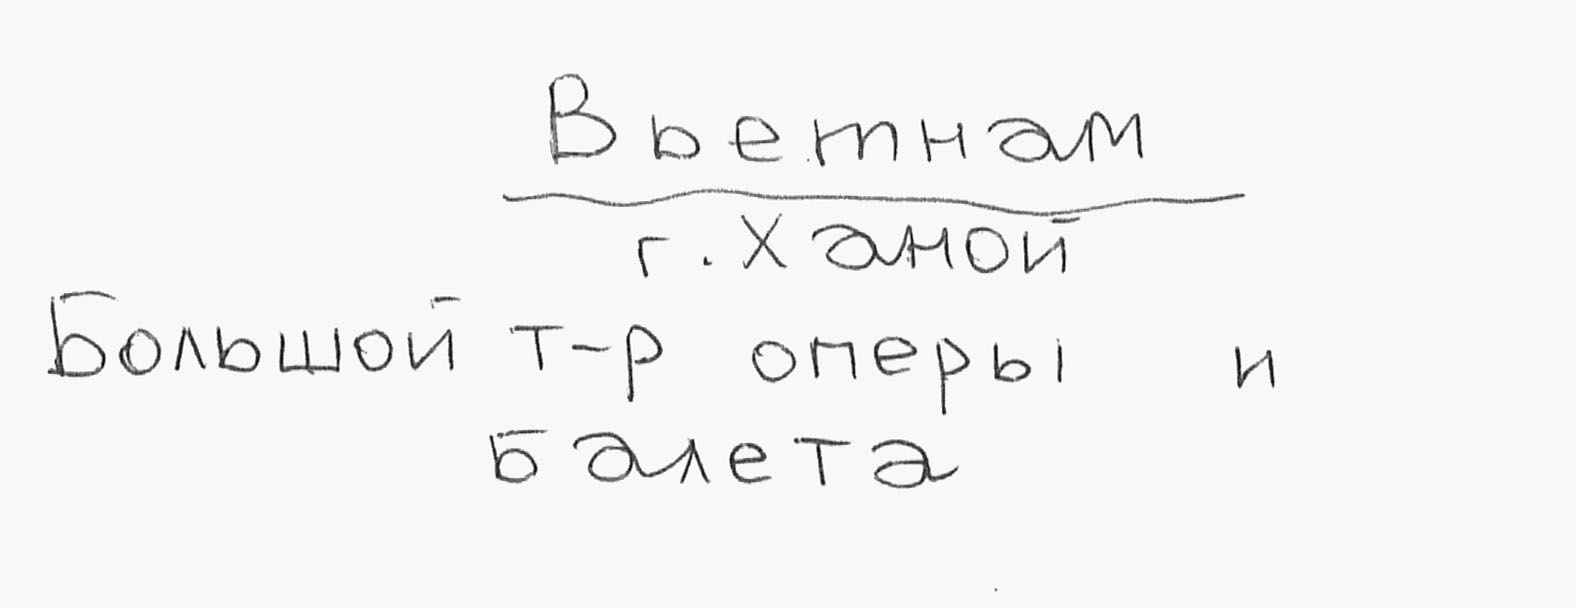 Вьетнам
г. Ханой
Большой т-р оперы и
балета